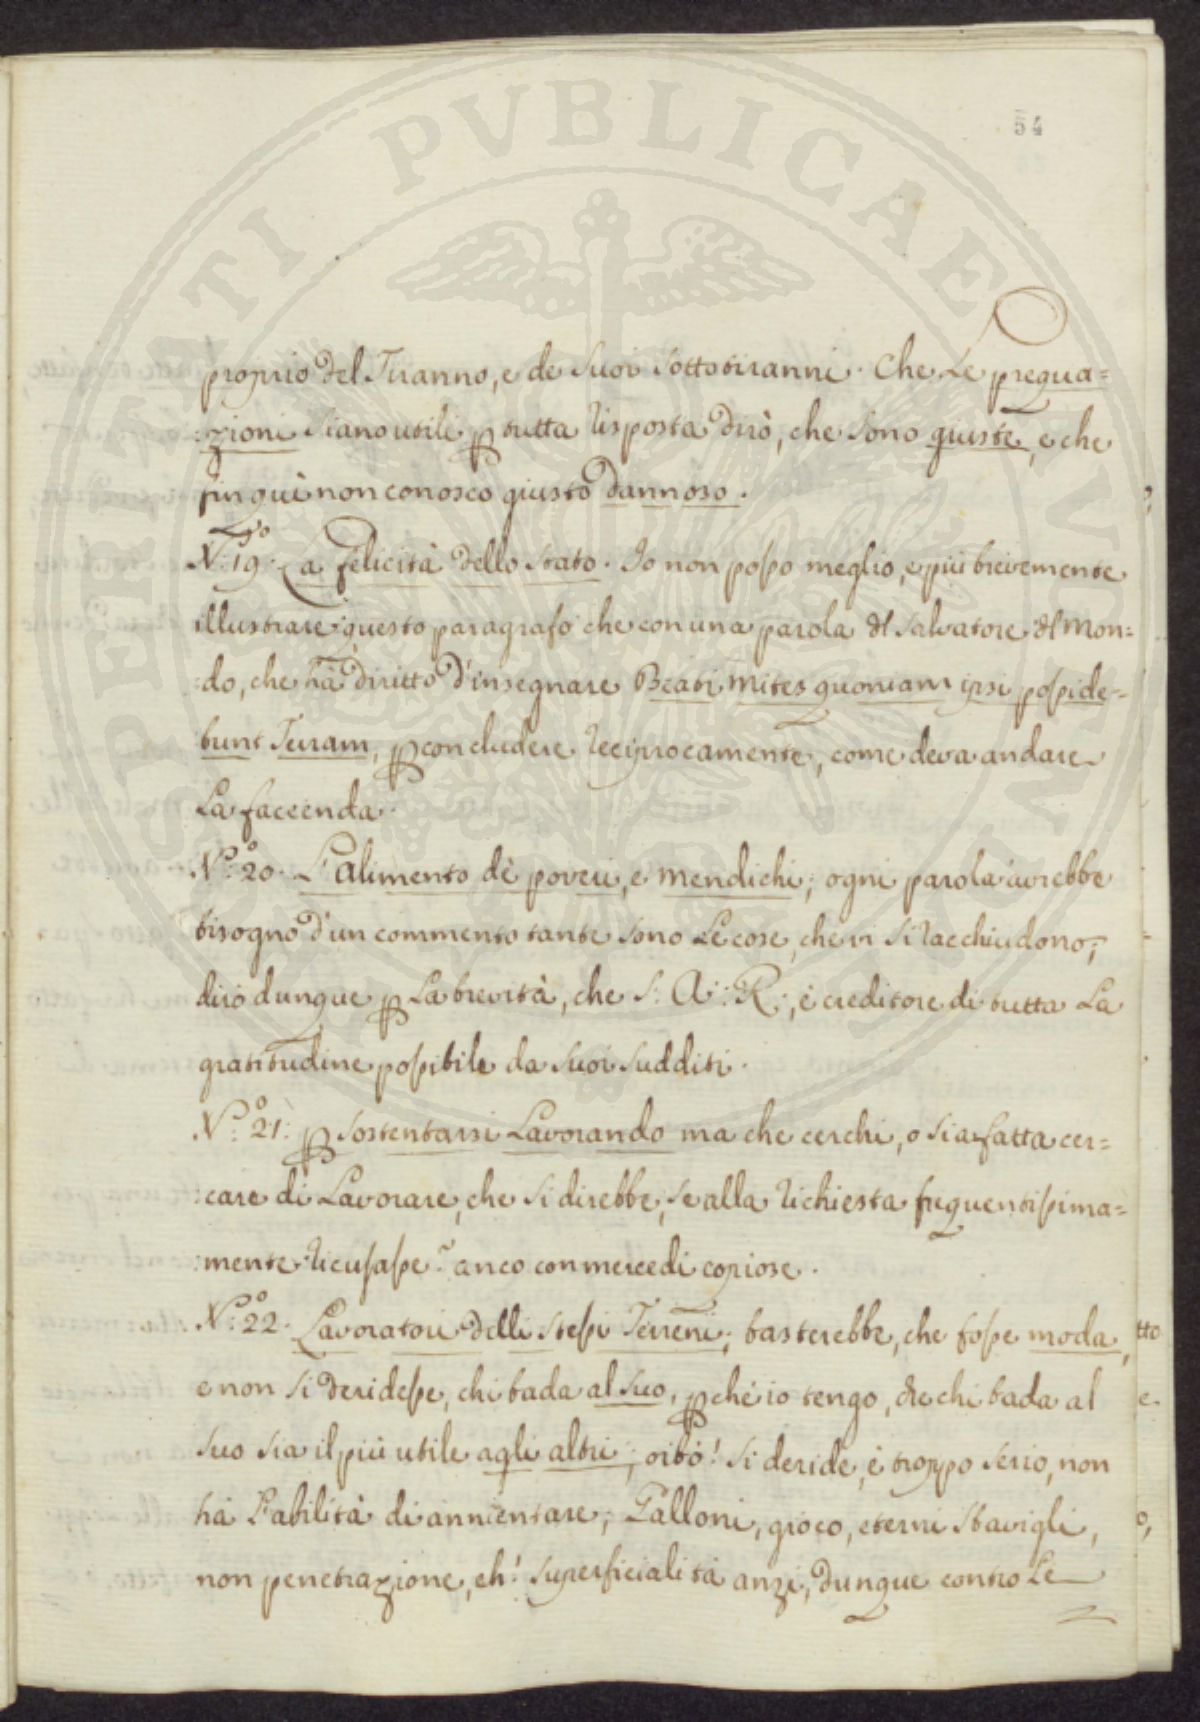 54
proprio del Tiranno, e de Suoi Sottotiranni. Che Le prequa=
:zioni Siano utili p tutta risposta dirò, che Sono giuste, e che
fin quì non conosco giusto dannoso.
N:ro 19. La felicità dello Stato. Io non posso meglio, e più brevemente
illustrare questo paragrafo che con una parola dl Salvatore dl Mon=
:do, che hà diritto d'insegnare Beati mites quoniam ipsi posside=
bunt Terram, p concludere reciprocamente, come deva andare
La faccenda.
N:o 20. L'Alimento dè poveri, e mendichi; ogni parola avrebbe
bisogno d'un commento tante Sono Le cose, che vi Si racchiudono;
dirò dunque p La brevità, che S: A: R:, è creditore di tutta La
gratitudine possibile da Suoi Sudditi.
N:o 21: p Sostentarsi Lavorando ma che cerchi, o Sia fatta cer=
:care di Lavorare, che Si direbbe, Se alla richiesta frequentissima=
:mente ricusasse? anco con mercedi copiose.
N:o 22. Lavoratori delli Stessi Terreni; basterebbe, che fosse moda,
e non Si deridesse, chi bada al Suo, pchè io tengo, che chi bada al
Suo Sia il più utile agli altri; oibò! Si deride, è troppo Serio, non
hà l'abilità di annientare; Palloni, gioco, eterni Sbavigli,
non penetrazione, eh! Superficialità anzi, dunque contro Le
SPERITATI PVBLICAE
tto
e.
o,